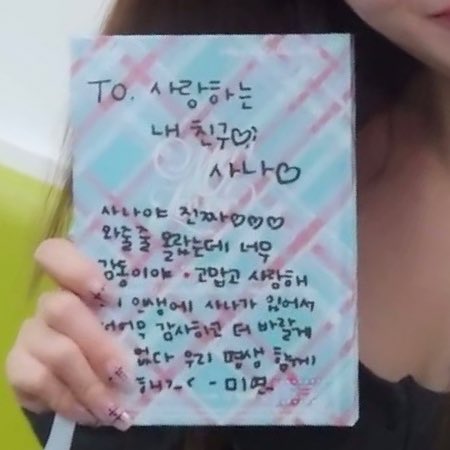 TO. 사랑하는
내 친구♡
사나♡
사나야 진짜♡♡♡
와줄줄 몰랐는데 너무
감동이야 · 고맙고 사랑해
인생에 사나가 있어서
감사하고 더 바랄게
없다 우리 평생 함께
해 - 미연